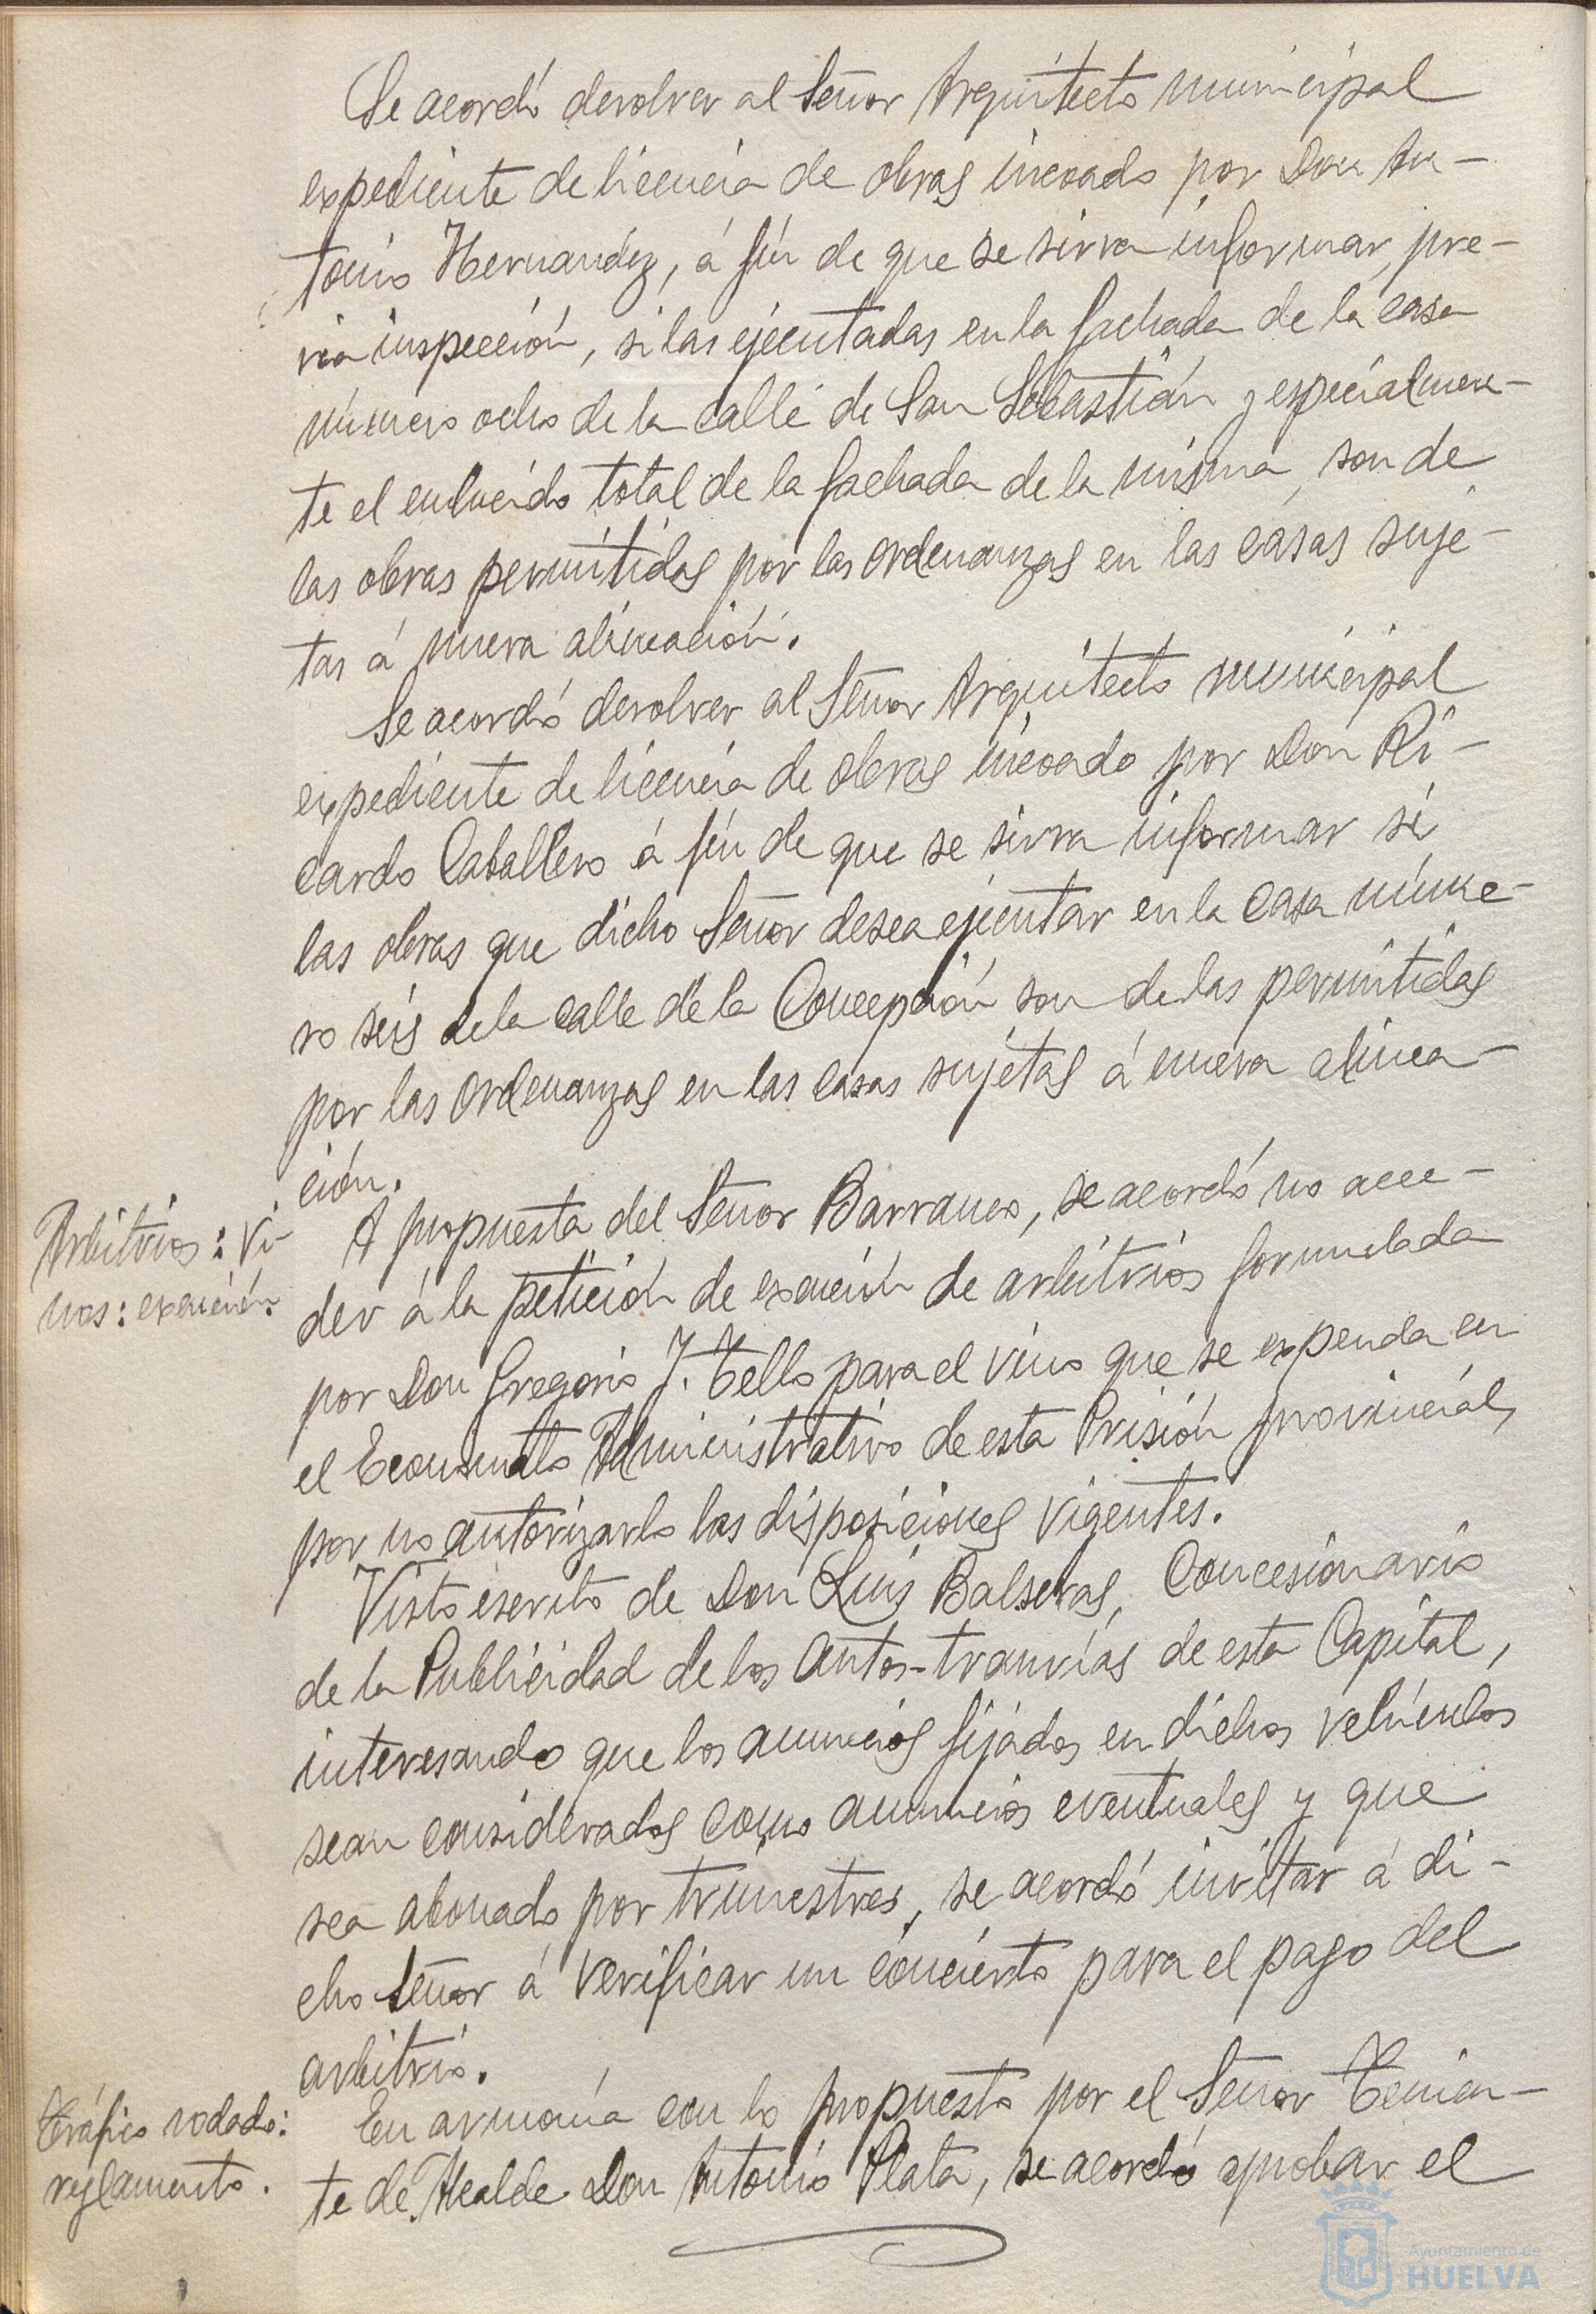 Se acordó devolver al Señor Arquitecto municipal
expediente de licencia de obras incoado por Don An-
tonio Hernandez, á fin de que se sirva informar, pre-
via inspección, si las ejecutadas en la fachada de la casa
número ocho de la calle de San Sebastián y especialmen-
te el enlucido total de la fachada de la misma, son de
las obras permitidas por las ordenanzas en las casas suje-
tas á nueva alineación.
Se acordó devolver al Señor Arquitecto municipal
expediente de licencia de obras incoado por Don Ri-
cardo Caballero á fin de que se sirva informar si
las obras que dicho Señor desea ejecutar en la casa núme-
ro seis de la calle de la Concepción son de las permitidas
por las ordenanzas en las casas sujetas á nueva alinea-
ción.
Arbitrios: Vi-
nos: exención.
A propuesta del Señor Barranco, se acordó no acce-
der á la petición de exención de arbitrios formulada
por Don Gregorio J. Tello para el vino que se expenda en
el Economato Administrativo de esta Prisión provincial,
por no autorizarlo las disposiciones vigentes.
Visto escrito de Don Luis Balseras, Concesionario
de la Publicidad de los Autos-tranvías de esta Capital,
interesando que los anuncios fijados en dichos vehículos
sean considerados como anuncios eventuales y que
sea abonado por trimestres, se acordó invitar á di-
cho Señor á verificar un concierto para el pago del
arbitrio.
Tráfico rodado:
reglamento.
En armonía con lo propuesto por el Señor Tenien-
te de Alcalde Don Antonio Plata, se acordó aprobar el
Ayuntamiento de
HUELVA